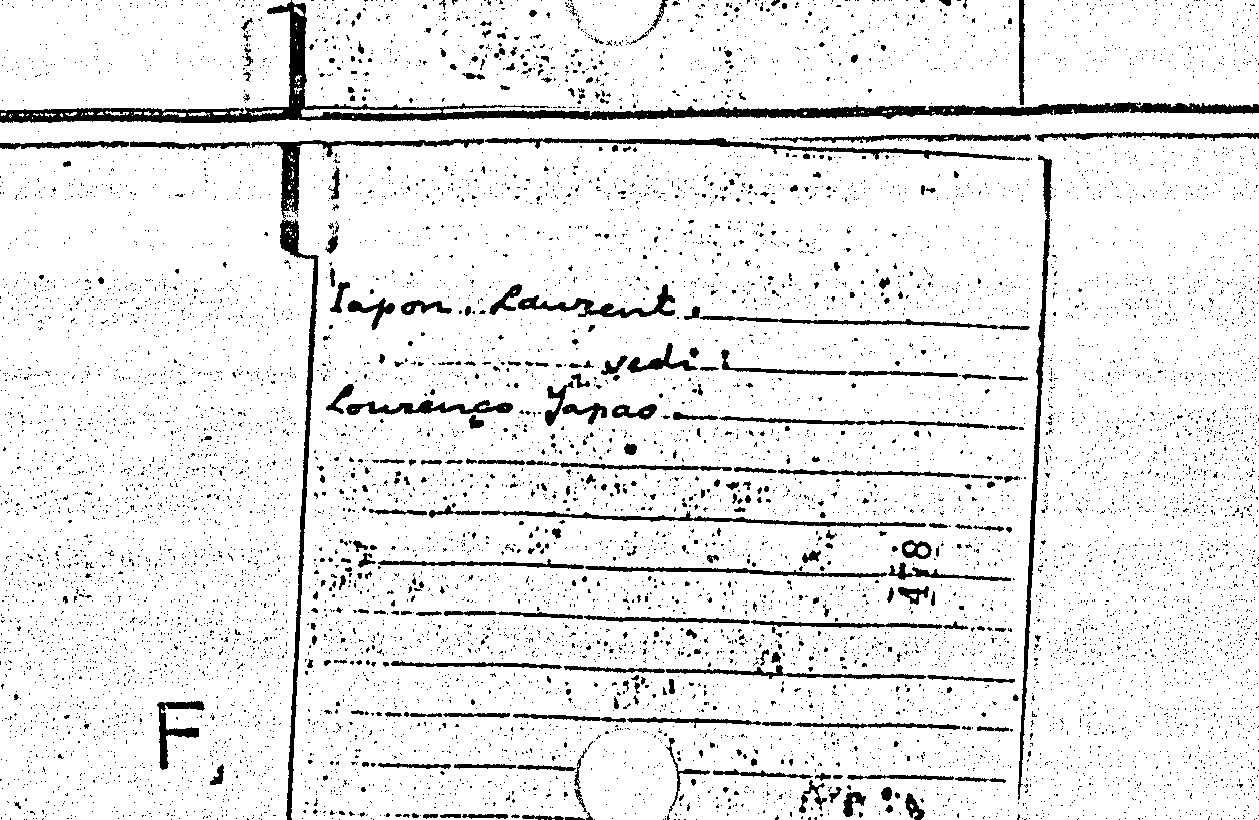 Iapon, Laurent.
vedi:
Lourenço Japão.
418
F